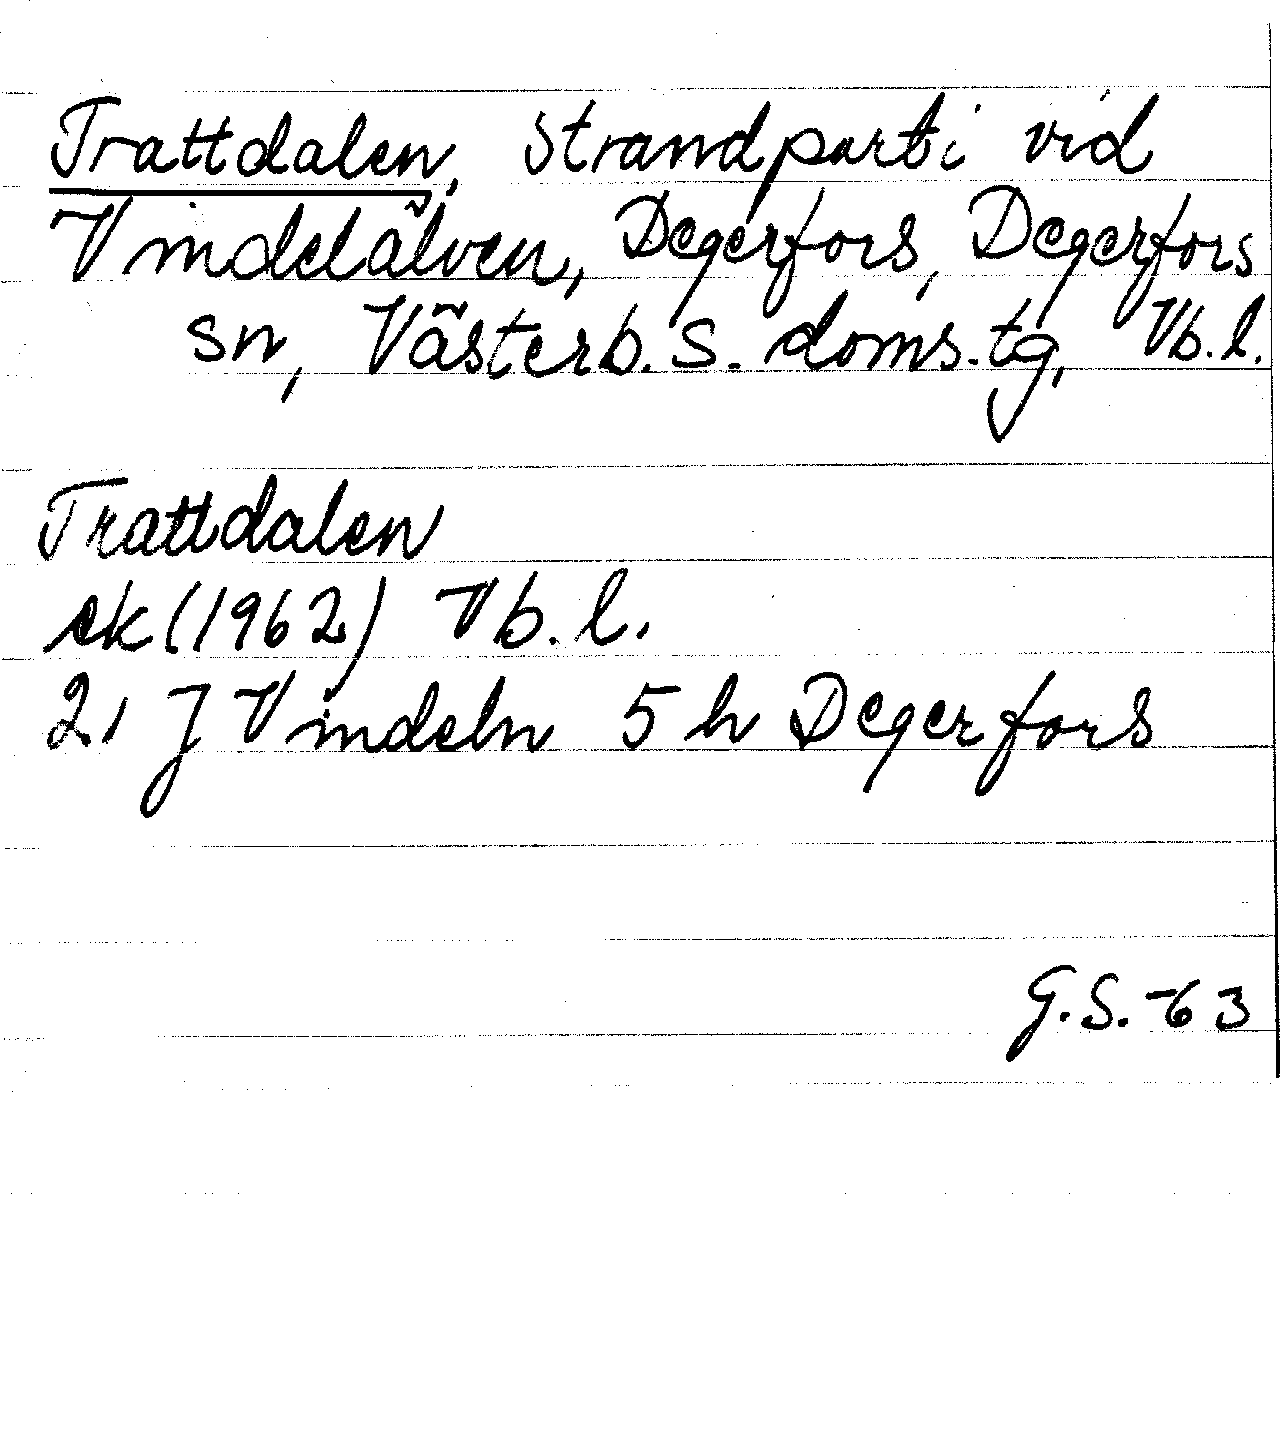 Trattdalen, Strandparti vid
Vindelälven, Degerfors, Degerfors
sn, Västerb. S. doms. tg, Vb. l.
Trattdalen
ek (1962) Vb. l.
21 J Vindeln 5 h Degerfors
G.S. -63